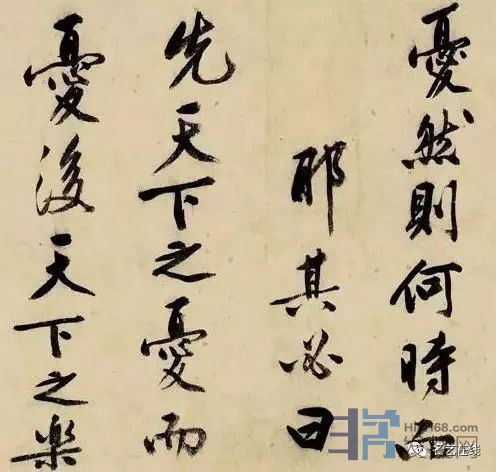 憂然則何時而
耶其必曰
先天下之憂而
憂後天下之樂
名艺在线